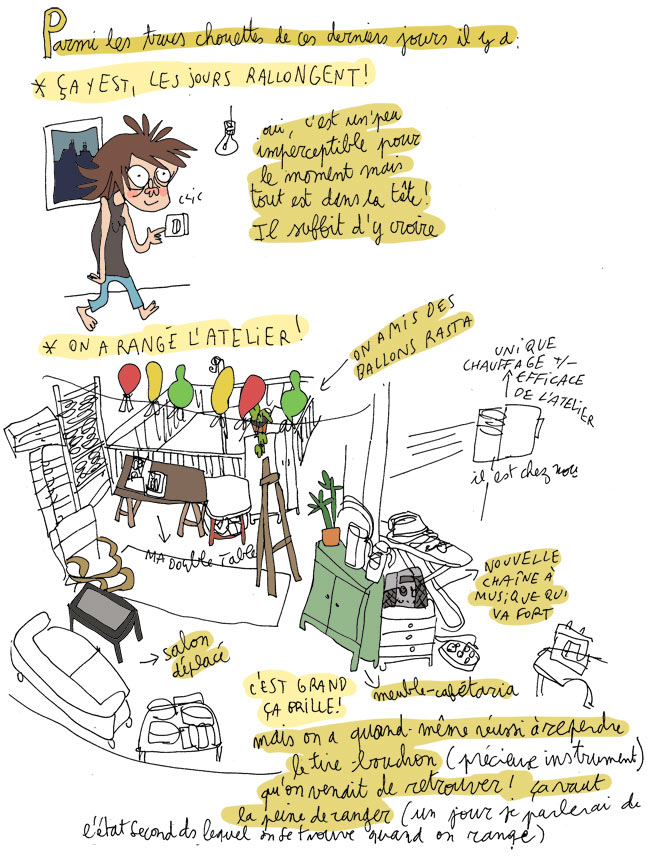 Parmi les trucs chouettes de ces derniers jours il y a:
* ÇA Y EST, LES JOURS RALLONGENT!
oui, c'est un peu
imperceptible pour
le moment mais
tout est dans la tête!
Il suffit d'y croire
CLIC
* ON A RANGÉ L'ATELIER!
ON A MIS DES
BALLONS RASTA
UNIQUE
CHAUFFAGE +/-
EFFICACE
DE L'ATELIER
il est chez nous
MA DOUBLE TABLE
NOUVELLE
CHAÎNE À
MUSIQUE QUI
VA FORT
salon
déplacé
meuble-cafétaria
C'EST GRAND
ÇA BRILLE!
mais on a quand même réussi à reperdre
le tire bouchon (précieux instrument)
qu'on venait de retrouver! ça vaut
la peine de ranger (un jour je parlerai de
l'état second ds lequel on se trouve quand on range)